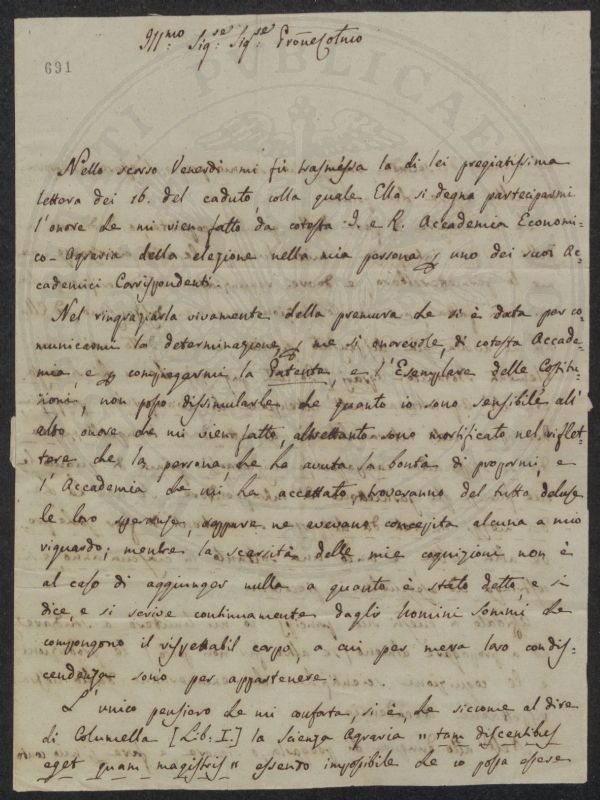 Ill.mo Sig.re Sig.re Prōne Colmo
691
Nello scorso Venerdi mi fù trasmessa la di lei pregiatissima
lettera dei 16. del caduto, colla quale Ella si degna parteciparmi
l'onore che mi vien fatto da cotesta I. e R. Accademia Economi-
co-Agraria della elezione nella mia persona p uno dei suoi Ac-
cademici Corrispondenti.
Nel ringraziarla vivamente della premura che si è data per co-
municarmi la determinazione, p me si onorevole, di cotesta Accade-
mia, e p compiegarmi la Patente, e l'Esemplare delle Costitu-
zioni, non posso dissimularle che quanto io sono sensibile all'
alto onore che mi vien fatto, altrettanto sono mortificato nel riflet-
tere che la persona, che ha avuta la bontà di propormi, e
l'Accademia che mi ha accettato, troveranno del tutto deluse
le loro speranze, seppure ne avevano concepita alcuna a mio
riguardo; mentre la scarsità delle mie cognizioni non è
al caso di aggiunger nulla a quanto è stato detto, e si
dice, e si scrive continuamente dagli Uomini sommi che
compongono il rispettabil corpo, a cui per mera loro condis-
cendenza sono per appartenere.
L'unico pensiero che mi conforta, si è, che siccome al dire
di Columella [Lib: I.] la Scienza Agraria " tam discentibus
eget quam magistris " essendo impossibile che io possa essere